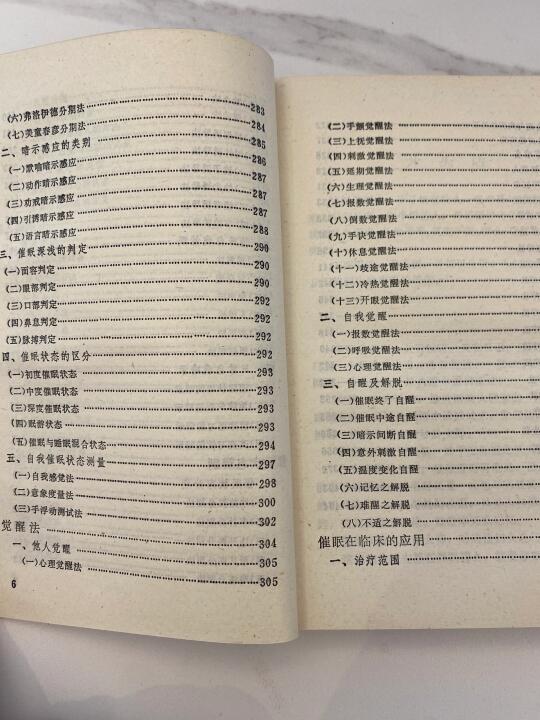 (六)弗洛伊德分期法……283
(七)美童春彦分期法……284
二、暗示感应的类别……285
(一)默啮暗示感应……286
(二)动作暗示感应……287
(三)劝戒暗示感应……287
(四)引诱暗示感应……287
(五)语言暗示感应……288
三、催眠深浅的判定……290
(一)面容判定……290
(二)眼部判定……290
(三)口部判定……292
(四)鼻息判定……292
(五)脉搏判定……292
四、催眠状态的区分……292
(一)初度催眠状态……293
(二)中度催眠状态……293
(三)深度催眠状态……293
(四)眠游状态……293
(五)催眠与睡眠混合状态……294
五、自我催眠状态测量……297
(一)自我感觉法……298
(二)意象度量法……300
(三)手浮动测试法……302
觉醒法……304
一、他人觉醒……305
(一)心理觉醒法……305
6
(二)手颤觉醒法……
(三)上抚觉醒法……
(四)刺激觉醒法……
(五)延期觉醒法……
(六)生理觉醒法……
(七)报数觉醒法……
(八)倒数觉醒法……
(九)手诀觉醒法……
(十)休息觉醒法……
(十一)歧途觉醒法……
(十二)冷热觉醒法……
(十三)开眼觉醒法……
二、自我觉醒……
(一)报数觉醒法……
(二)呼吸觉醒法……
(三)心理觉醒法……
三、自醒及解脱……
(一)催眠终了自醒……
(二)催眠中途自醒……
(三)暗示间断自醒……
(四)意外刺激自醒……
(五)温度变化自醒……
(六)记忆之解脱……
(七)难醒之解脱……
(八)不适之解脱……
催眠在临床的应用……
一、治疗范围……